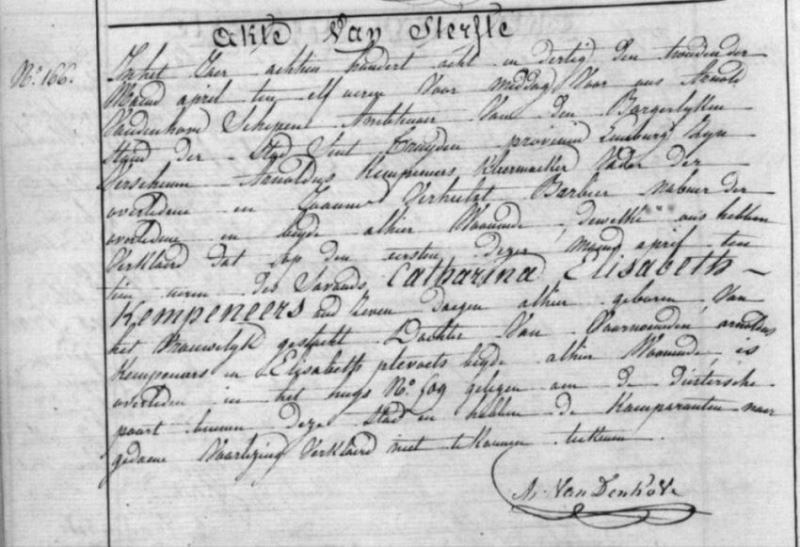 Akte Van Sterfte
N.º 166.
In het Jaer achttien hondert acht en dertig den tweeden der
Maend april ten elf uren Voor middag Voor ons Arnold
Vandenhove Schepen Ambtenaer Van den Borgerlyken
Stand der Stad Sint Truyden provincie Limburg Zyn
Verschenen Arnoldus Kempeneers, Vader der
overledene en Joannes Barbier nabuer der
overledene en beyde alhier Woonende, dewelke ons hebben
Verklaerd dat op den eersten dezer maend april ten
tien uren des Savonds, Catharina Elisabeth
Kempeneers oud Zeven daegen alhier geboren, Van
het Vrouwelyk geslacht Dochter Van Voornoemden arnoldus
Kempeneers en Elisabeth plevoets beyde alhier Woonende, is
overleden in het huys N.º 609 gelegen aen de diestersche
poort binnen deze Stad en hebben de Komparanten naer
gedaene Voorlezing Verklaerd niet te konnen teekenen.
Ar. VanDenhove